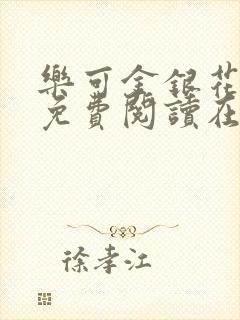 樂可金銀花
免費閱讀在
徐孝江